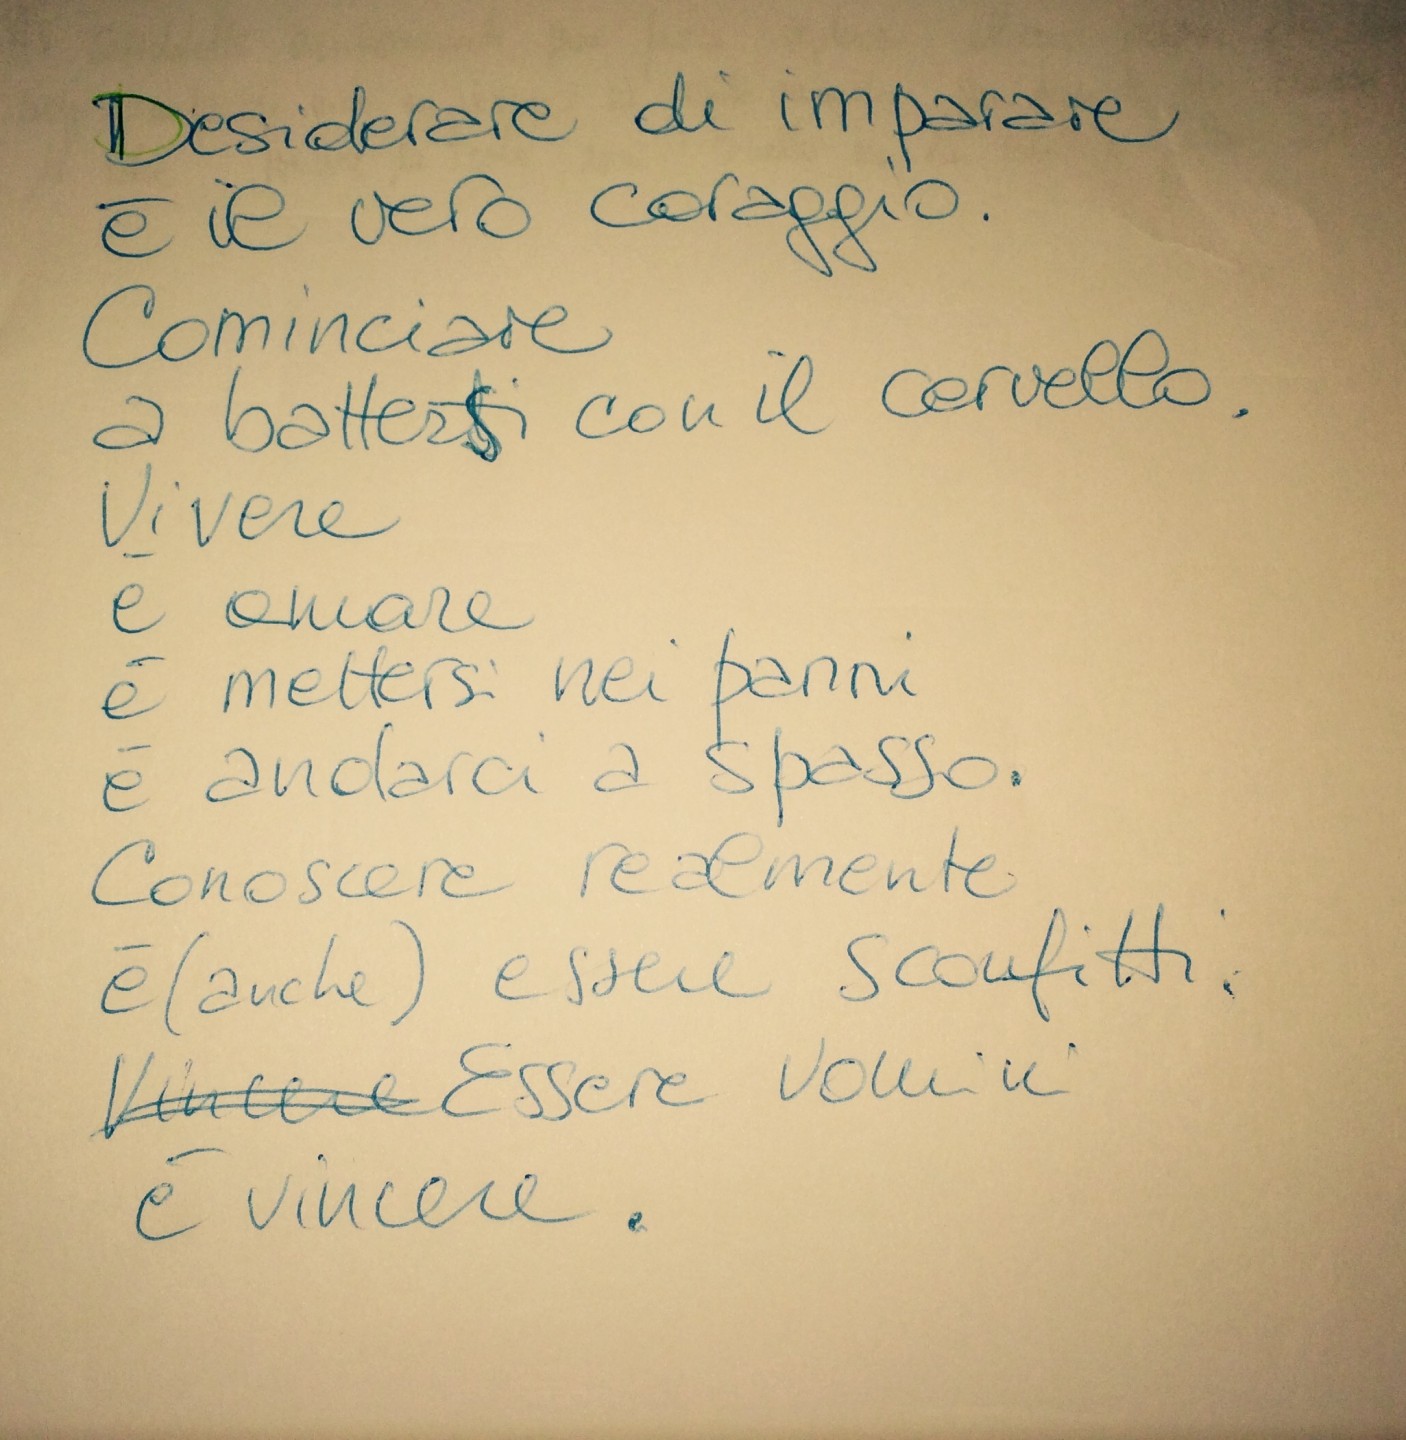 Desiderare di imparare
è il vero coraggio.
Cominciare
a battersi con il cervello.
Vivere
è amare
è mettersi nei panni
è andarci a spasso.
Conoscere realmente
è (anche) essere sconfitti.
Vincere Essere uomini
è vincere.